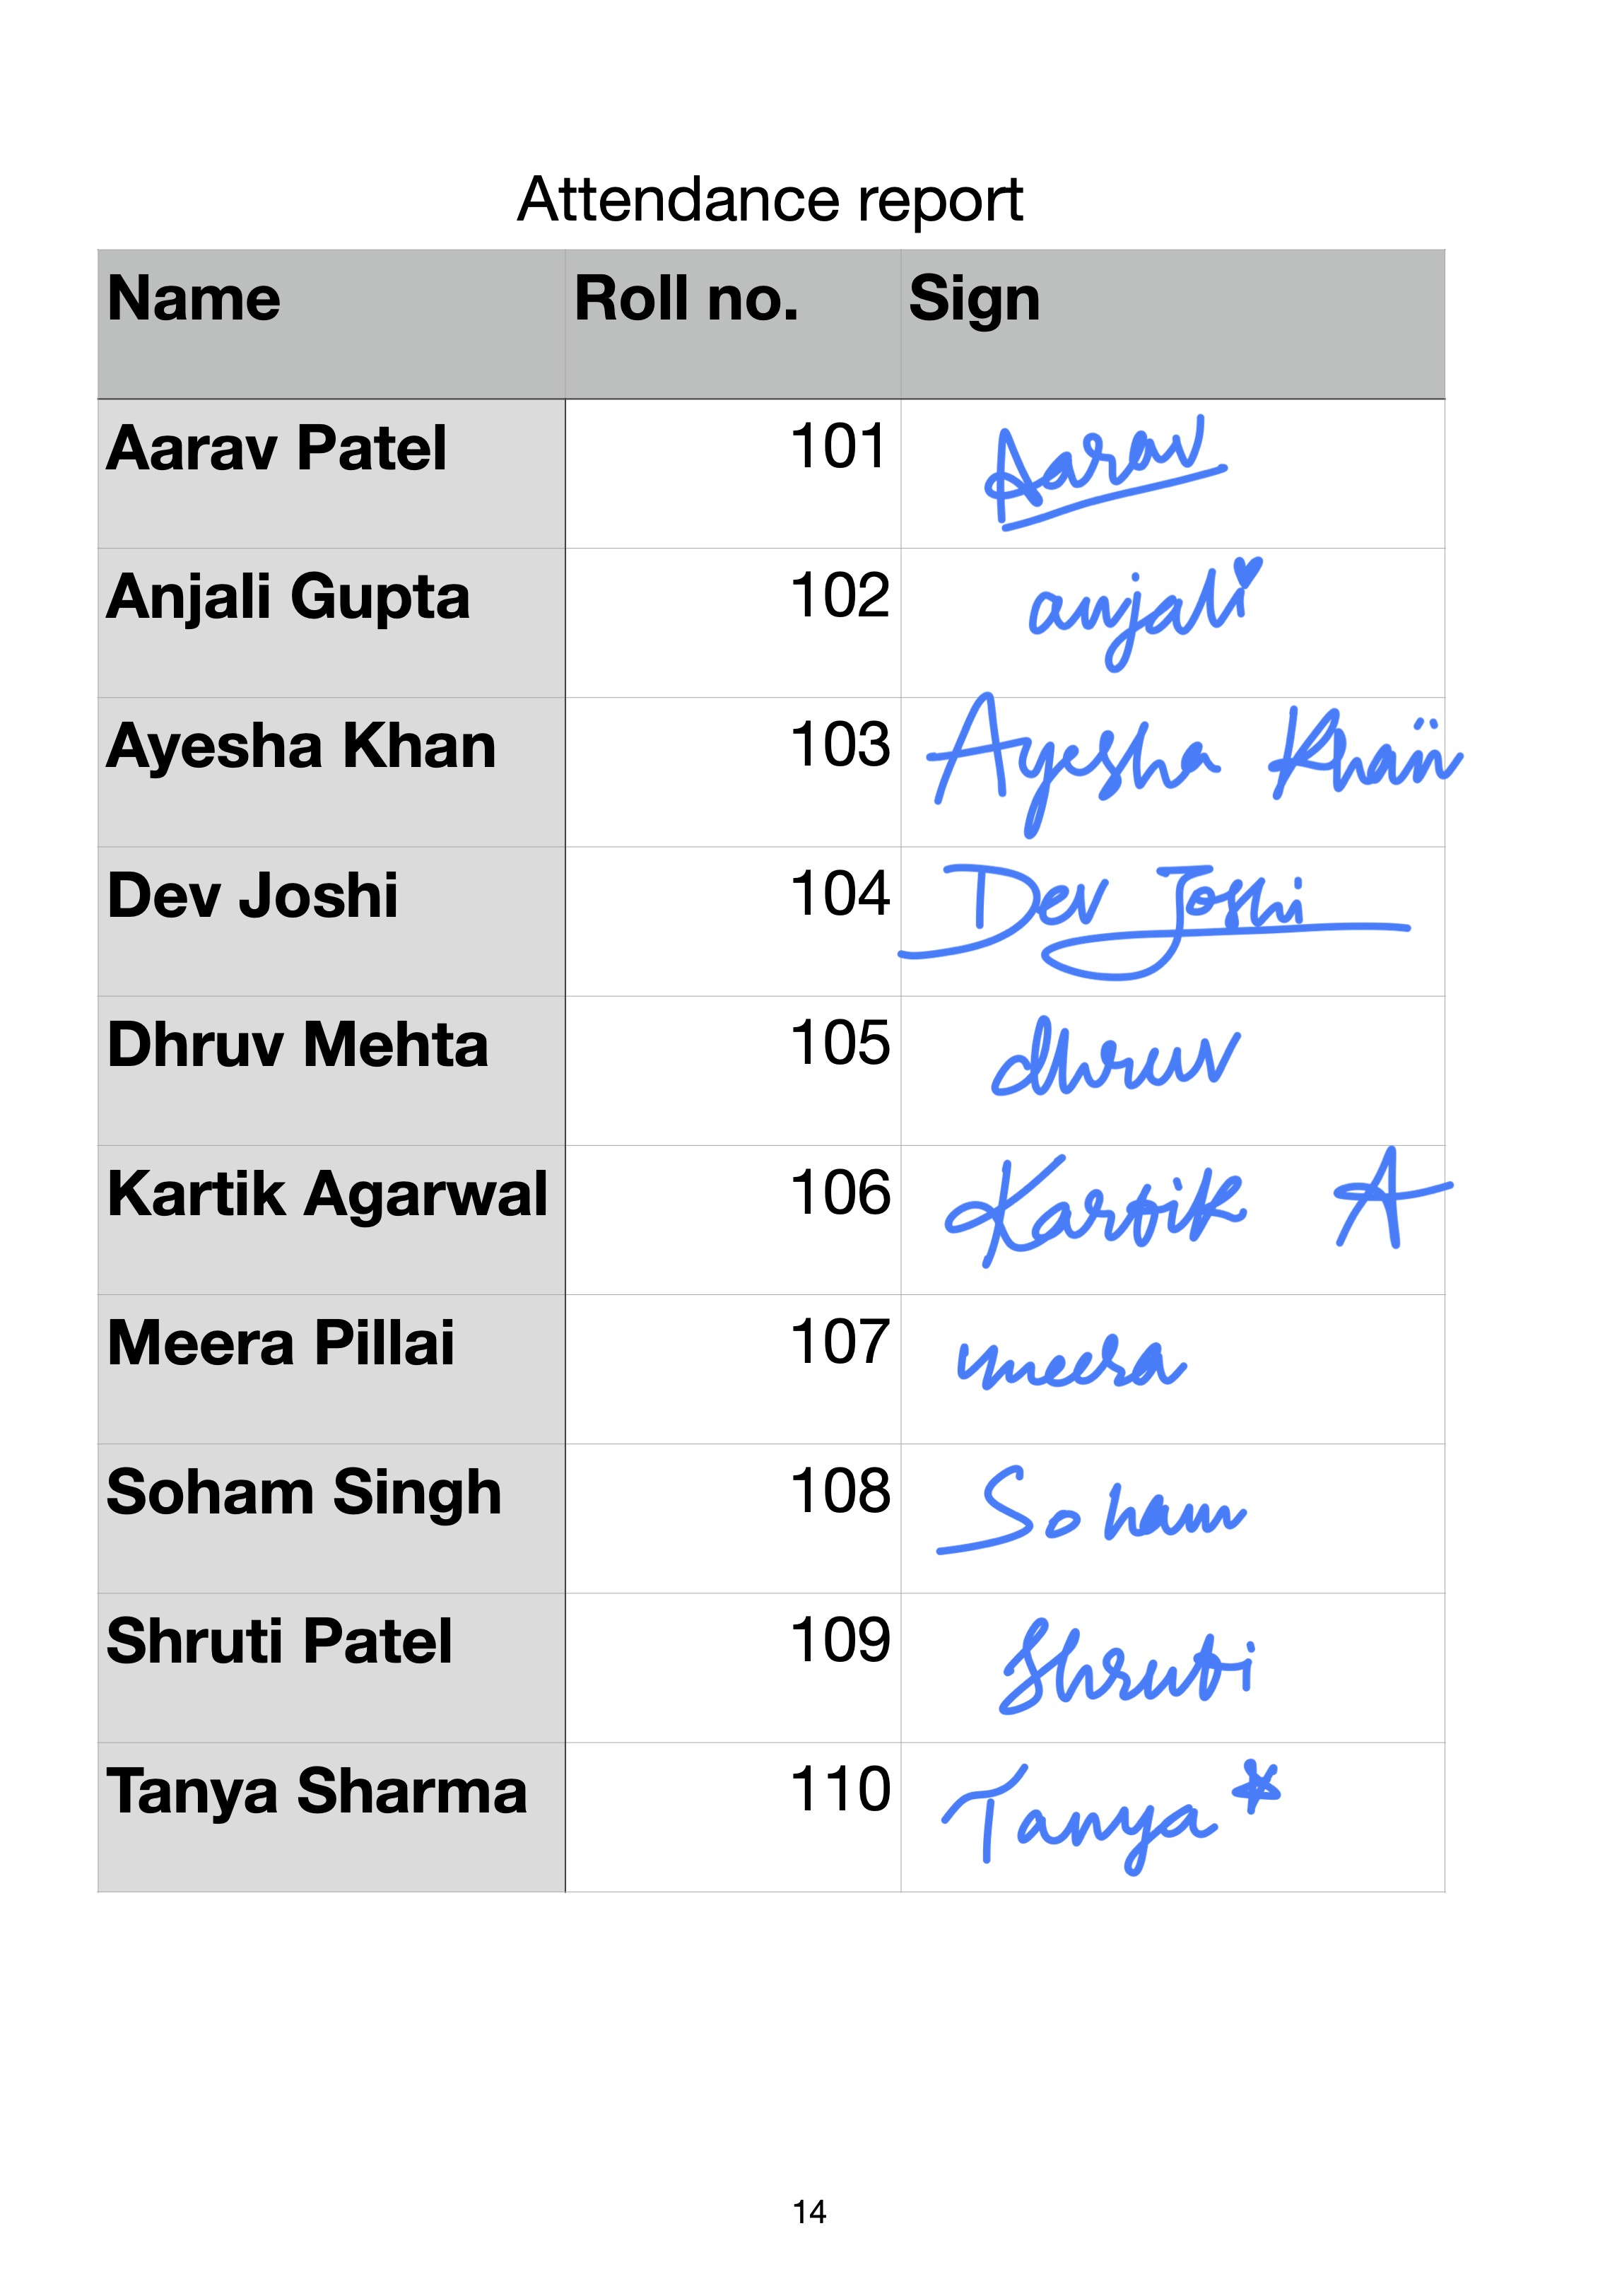 Attendance report
Name Roll no. Sign
Aarav Patel 101 Aarav
Anjali Gupta 102 anjali
Ayesha Khan 103 Ayesha Khan
Dev Joshi 104 Dev Joshi
Dhruv Mehta 105 dhruv
Kartik Agarwal 106 Kartik A
Meera Pillai 107 meera
Soham Singh 108 Soham
Shruti Patel 109 Shruti
Tanya Sharma 110 Tanya *
14